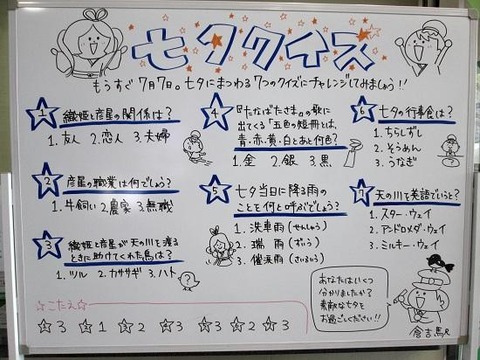 七夕クイズ
もうすぐ7月7日。七夕にまつわる7つのクイズにチャレンジしてみましょう!!
1 織姫と彦星の関係は?
1.友人 2.恋人 3.夫婦
2 彦星の職業は何でしょう?
1.牛飼い 2.農家 3.無職
3 織姫と彦星が天の川を渡る
ときに助けてくれた鳥は?
1.ツル 2.カササギ 3.ハト
4 『たなばたさま』の歌に
出てくる「五色の短冊」とは、
青・赤・黄・白とあと何色?
1.金 2.銀 3.黒
5 七夕当日に降る雨の
ことを何と呼ぶでしょう?
1.洗車雨(せんしゃう)
2.瑞雨(ずいう)
3.催涙雨(さいるいう)
6 七夕の行事食は?
1.ちらしずし
2.そうめん
3.うなぎ
7 天の川を英語でいうと?
1.スター・ウェイ
2.アンドロメダ・ウェイ
3.ミルキー・ウェイ
☆こたえ☆
1 3 2 1 3 2 4 3 5 3 6 2 7 3
あなたはいくつ
分かりましたか?
素敵な七夕を
お過ごしください!!
倉吉駅